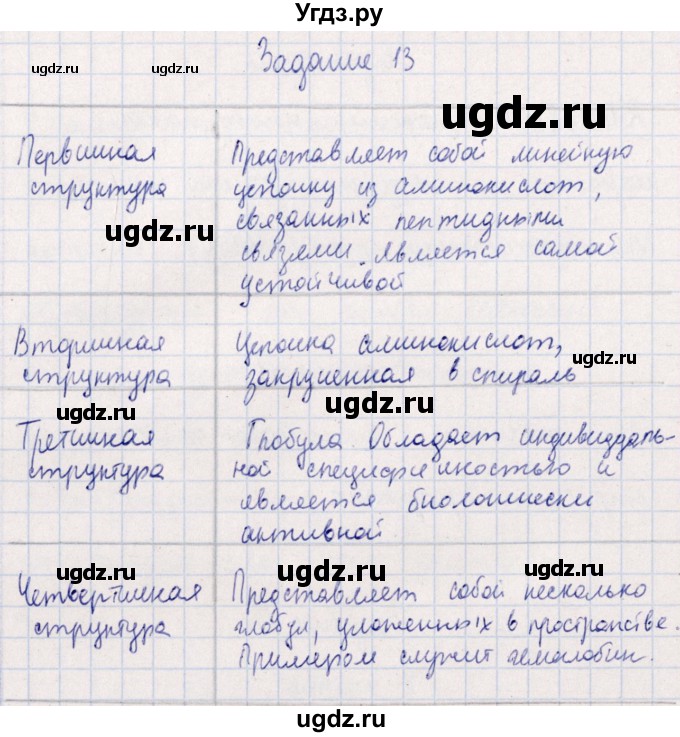 Угдз.ру
Задание 13
ugdz.ru
ugdz.ru
ugdz.ru
Первичная
структура
Представляет собой линейную
цепочку из аминокислот,
связанных пептидными
связями. Является самой
устойчивой
ugdz.ru
ugdz.ru
Вторичная
структура
Цепочка аминокислот,
закрученная в спираль
ugdz.ru
ugdz.ru
ugdz.ru
Третичная
структура
Глобула. Обладает индивидуаль-
ной специфичностью и
является биологически
активной
ugdz.ru
ugdz.ru
ugdz.ru
Четвертичная
структура
Представляет собой несколько
глобул, уложенных в пространстве.
Примером служит гемоглобин.
ugdz.ru